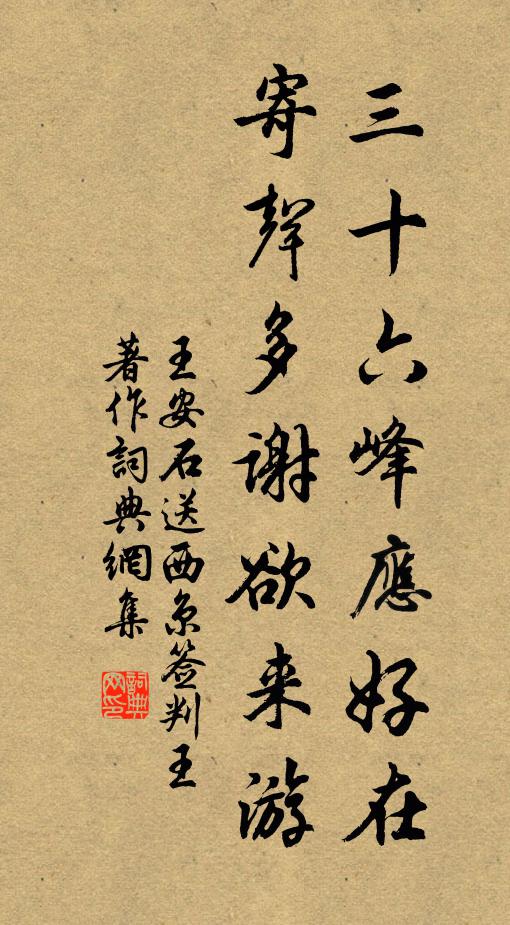 三十六峰應好在
寄聲多謝欲来游
王安石送西京簽判王
著作詞典網集
詞典网印